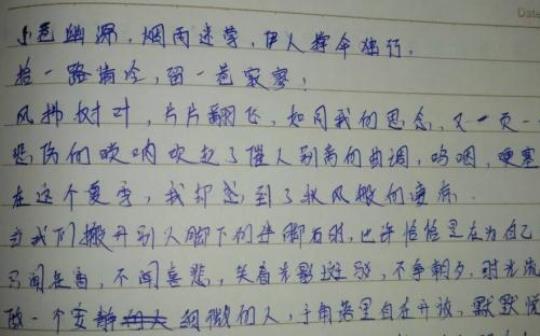 Date
小巷幽深，烟雨迷蒙，伊人撑伞独行，
拾一路清冷，留一巷寂寥，
风拂树叶，片片翻飞，如同我的思念，又一页一
悲伤的唢呐吹起了催人别离的曲调，呜咽，哽塞
在这个夏季，我却感到了秋风般的凄凉
当我们搬开别人脚下的绊脚石时，也许恰恰是在为自己
只闻花香，不闻喜悲，笑看光影斑驳，不争朝夕，时光流
做一个安静细微的人，于角落里自在开放，默默悦